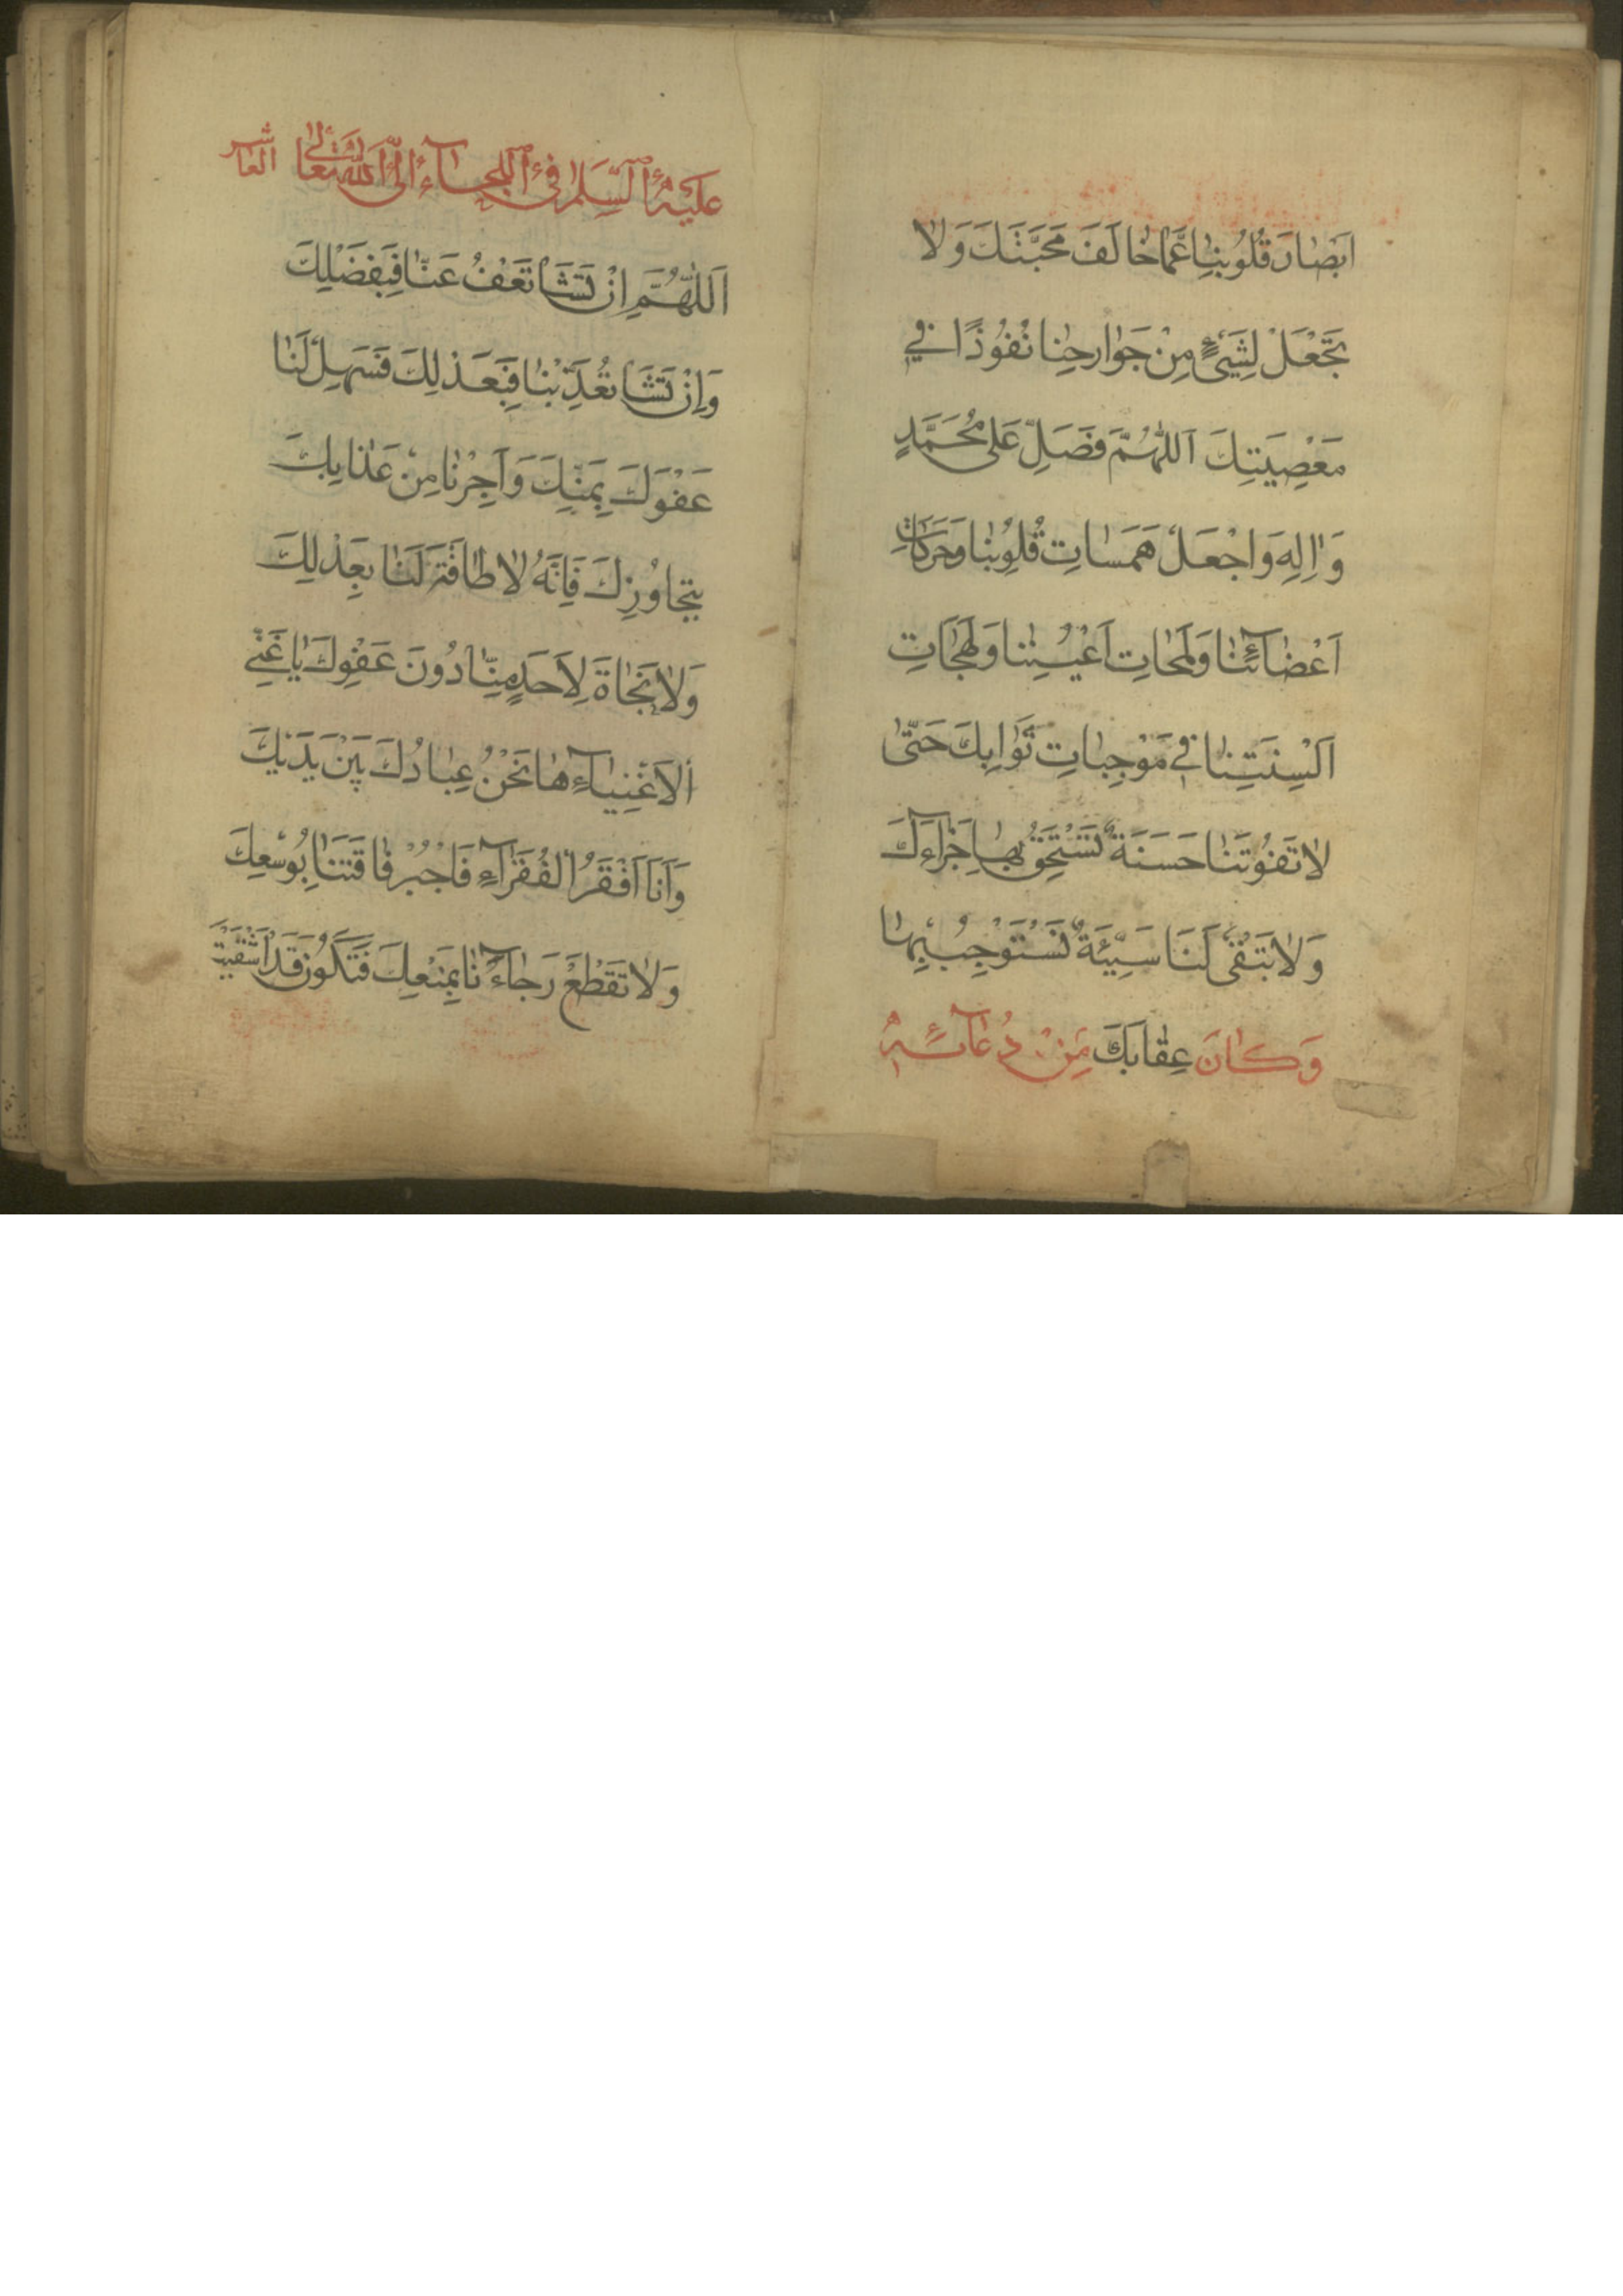 اَبْصٰارَ قُلُوبِنٰا عَمّٰا خٰالَفَ مَحَبَّتَكَ وَلٰا
تَجْعَلْ لِشَيْءٍ مِنْ جَوٰارِحِنٰا نُفُوذًا فِي
مَعْصِيَتِكَ اَللّٰهُمَّ فَصَلِّ عَلٰى مُحَمَّدٍ
وَاٰلِهِ وَاجْعَلْ هَمَسٰاتِ قُلُوبِنٰا وَحَرَكٰاتِ
اَعْضٰائِنٰا وَلَمَحٰاتِ اَعْيُنِنٰا وَلَهَجٰاتِ
اَلْسِنَتِنٰا فِي مُوجِبٰاتِ ثَوٰابِكَ حَتّٰى
لٰا تَفُوتَنٰا حَسَنَةٌ نَسْتَحِقُّ بِهٰا جَزٰاءَكَ
وَلٰا تَبْقٰى لَنَا سَيِّئَةٌ نَسْتَوْجِبُ بِهٰا
عِقٰابَكَ وَكٰانَ مِنْ دُعٰائِهِ
عَلَيْهِ السَّلَامُ فِي اللَّجَاءِ اِلَى اللّٰهِ تَعَالٰى العاشر
اَللّٰهُمَّ اِنْ تَشَأْ تَعْفُ عَنّٰا فَبِفَضْلِكَ
وَاِنْ تَشَأْ تُعَذِّبْنٰا فَبِعَدْلِكَ فَسَهِّلْ لَنٰا
عَفْوَكَ بِمَنِّكَ وَاَجِرْنٰا مِنْ عَذٰابِكَ
بِتَجٰاوُزِكَ فَاِنَّهُ لٰا طٰاقَةَ لَنٰا بِعَدْلِكَ
وَلٰا نَجٰاةَ لِاَحَدٍ مِنّٰا دُونَ عَفْوِكَ يٰا غَنِيَّ
الْاَغْنِيٰاءِ هٰا نَحْنُ عِبٰادُكَ بَيْنَ يَدَيْكَ
وَاَنَا اَفْقَرُ الْفُقَرٰاءِ فَاجْبُرْ فٰاقَتَنٰا بِوُسْعِكَ
وَلٰا تَقْطَعْ رَجٰاءَنٰا بِمَنْعِكَ فَتَكُونَ قَدْ اَشْقَيْتَ